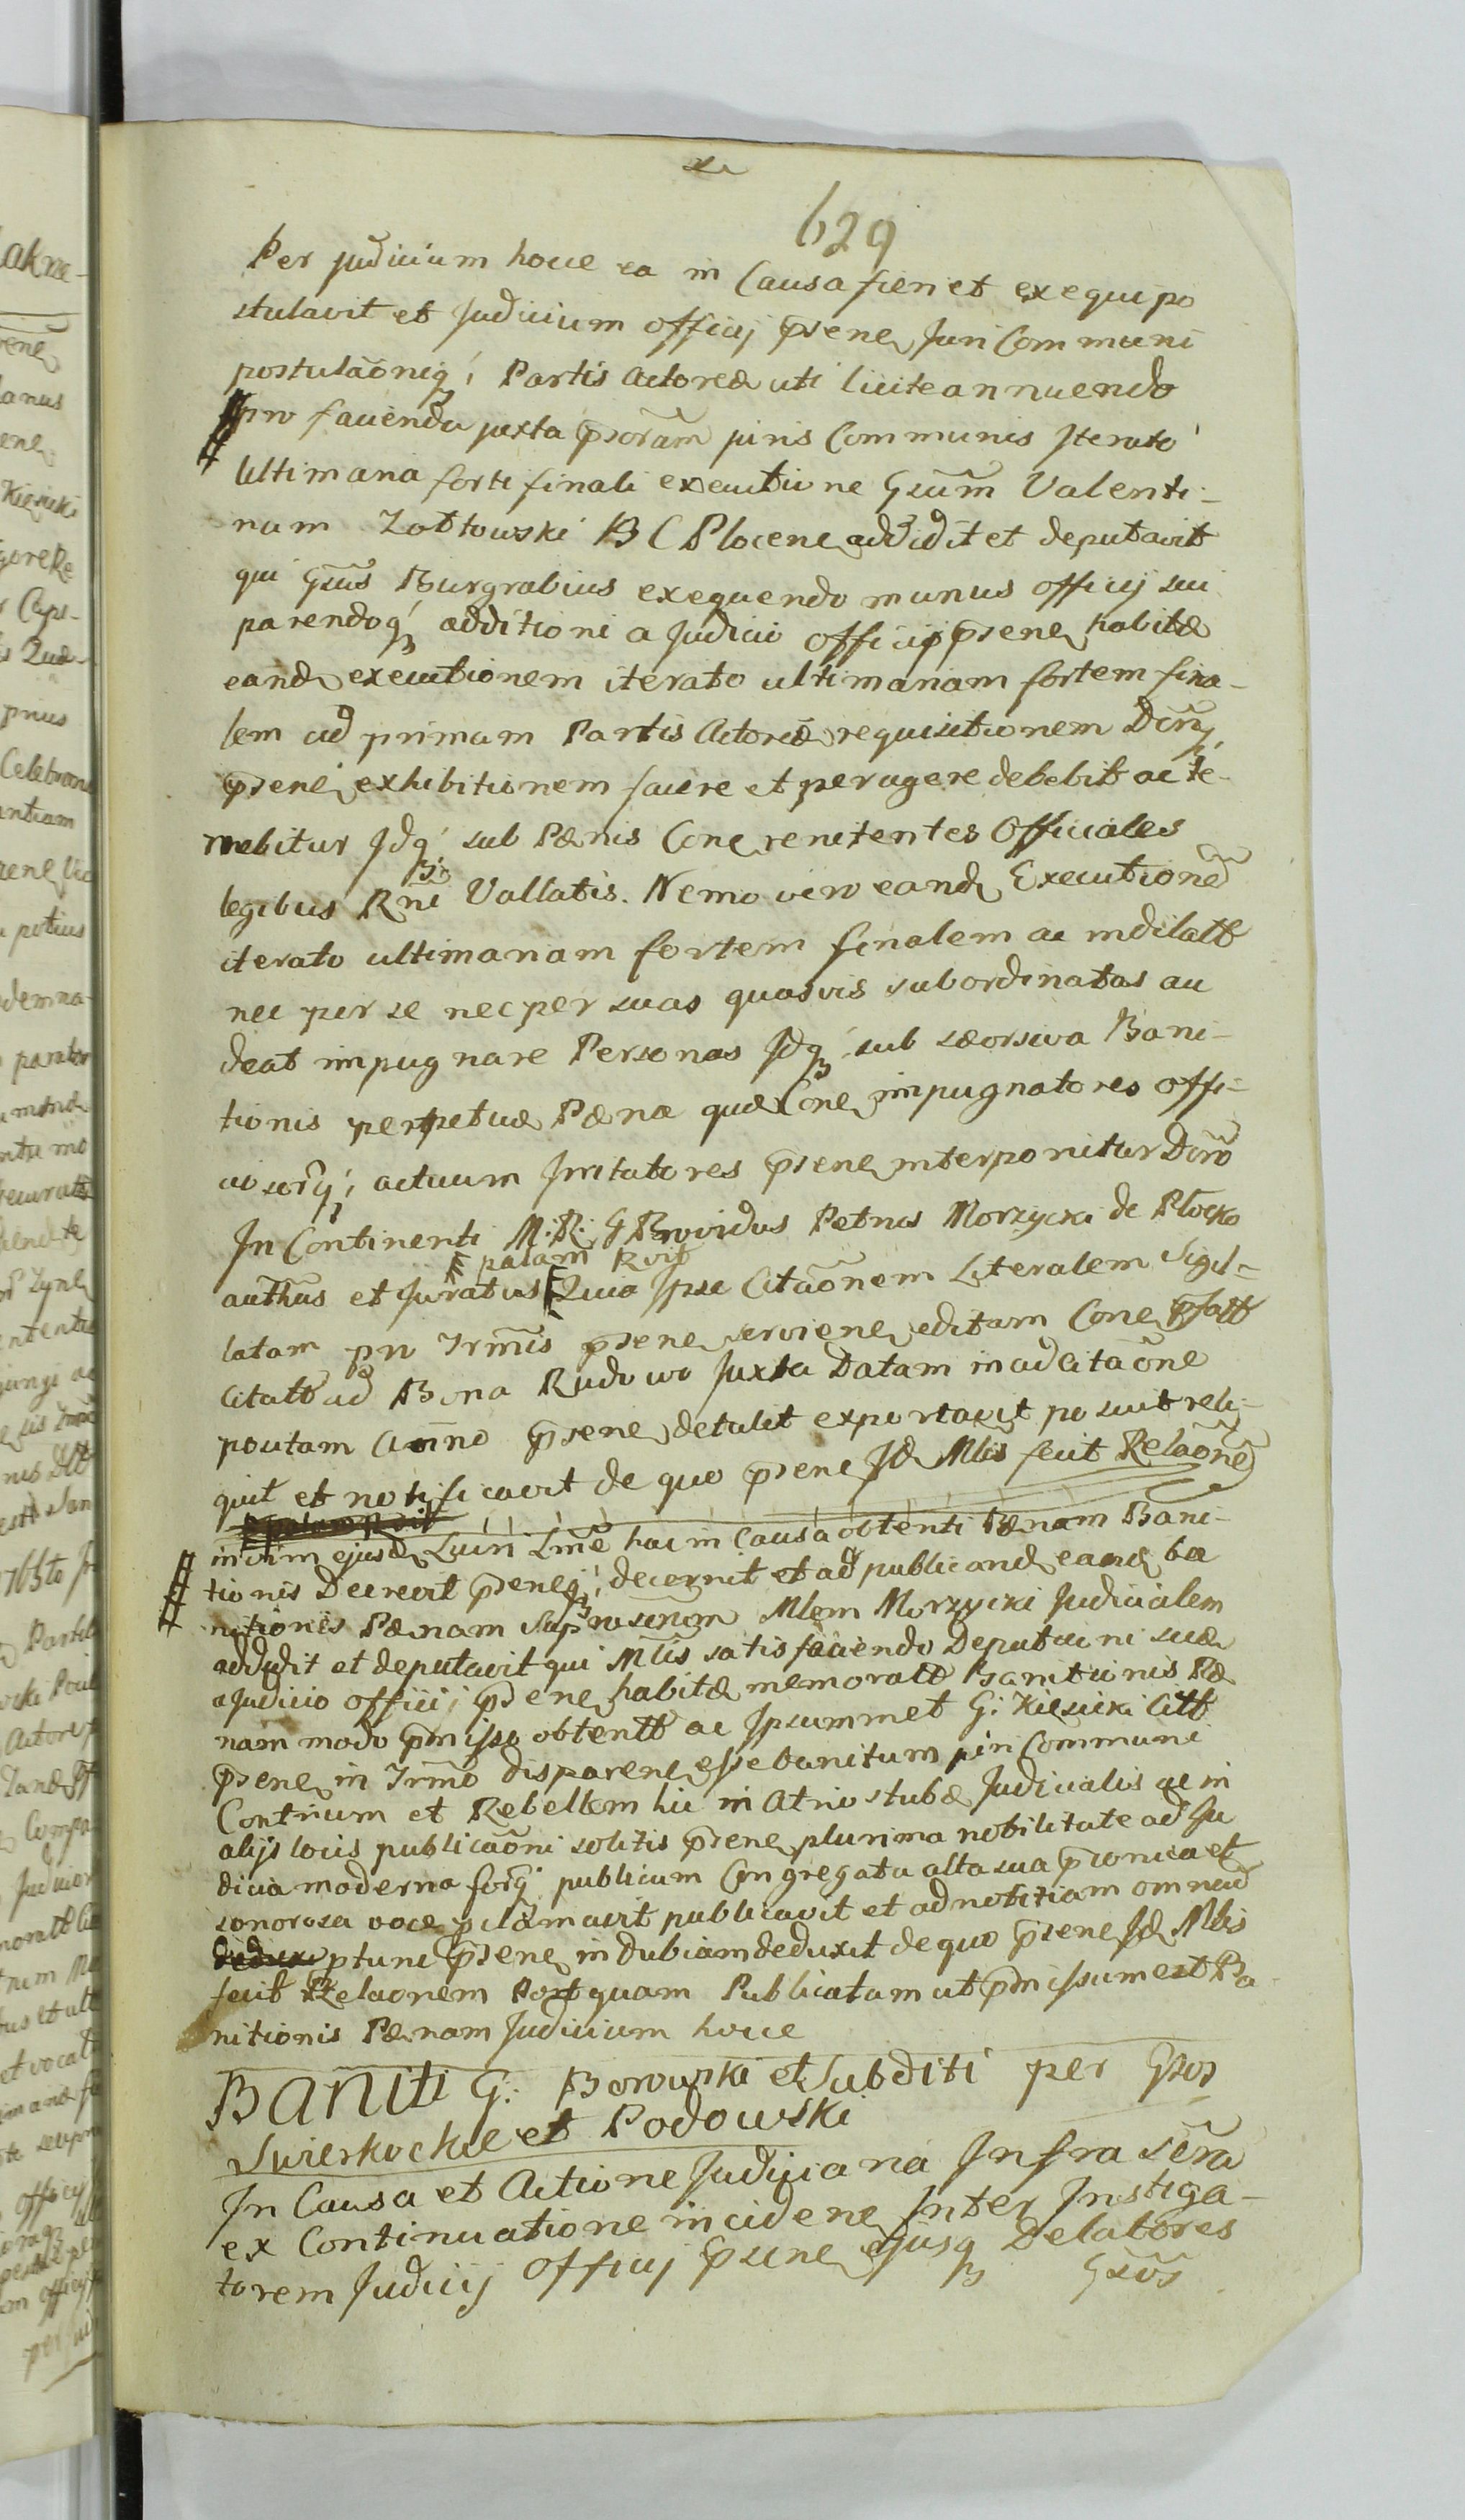 629
Per judicium hocce ea in Causa fieri et exequi po
stulavit et Judicium officij pñsene Juri Communi
postulaõniq; Partis Actoreæ uti licite annuendo
pro facienda juxta juris Communis Iterato
Ultimaria forti finali executione Gsum Valenti-
num Zołtowski B C Plocene addidit et deputavit
qui Gsus Burgrabius exequendo munus officij sui
parendoq; additioni a Judicio officij pñsene habitæ
eand executionem iterato ultimariam fortem fina-
lem ad primam Partis Actoreæ requisitionem
pñsene exhibitionem facere et peragere debebit ac te-
nebitur Idq; sub Pænis Cone renitentes Officiales
legibus Rñi Vallatis. Nemo vero eand Executionẽ
iterato ultimariam fortem finalem ac indilatt
nec per se nec per suas quasvis subordinatas au
deat impugnare Personas Idq; sub seorsiva Bani-
tionis perpetuæ Pæna quæ Cone impugnatores offi-
ciosorq; actuum Irritatores pñsene interponitur Dcrõ
In Continenti M: R: G Providus Petrus Morzycki de Płocko
palam Rvit
authũs et Juratus Quia Ipse Citaõnem Literalem Sigil-
latam pro Trmis pñsene serviene editam Cone Pfatt
Citatt ad Bona Rudowo Juxta Datam in ad Citaõne
positam Anno pñsene detulit exportavit posuit reli-
quit et notificavit de quo pñsene Id Mlis fecit Relaõnẽ
ejusd Lucri Lmẽ hac in Causa obtenti Pænam Bani-
tionis Decrevit pñseneq; decernit et ad publicand eand ba
nitionis Pænam Mlem Morzycki Judicialem
addidit et deputavit qui Mlis satisfaciendo Deputaõni suæ
a Judicio officij pñsene habitæ memoratt Banitionis Pæ
nam modo pmisso obtentt ac Ipsummet G: Kiesicki Citt
pñsene in Trmõ disparene esse banitum juri Communi
Contrium et Rebellem hic in Atrio stubæ Judicialis ac in
alijs locis publicaõni solitis pñsene plurima nobilitate ad Ju
dicia moderna forq; publicum Congregata alta sua pconica et
sonorosa voce pclamavit publicavit et ad notitiam omniũ
ptunc pñsene indubiam deduxit de quo pñsene Id Mlis
fecit Relaonem Postquam Publicatam ut pmissum est Ba-
nitionis Pænam Judicium hocce
Baniti G: Borowski et Subditi per Gsos
Swierkockie et Podowski
In Causa et Actione Judiciaria Infra sẽra
ex Continuatione incidene Inter Instiga-
torem Judicij Officij pñsene ejusq; Delatores
Gsõs